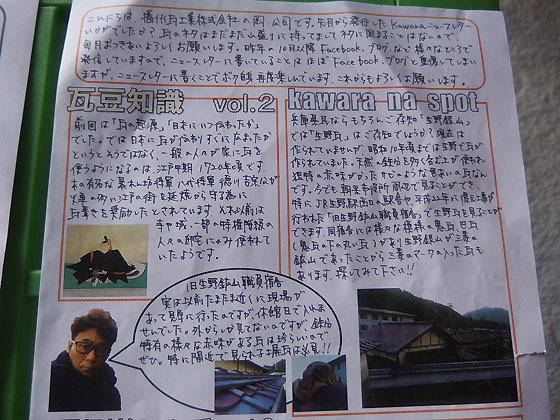 こんにちは、播州瓦工業株式会社の
です。先月から発行したKawaraニュースレター
いかがでしたか？瓦のネタはまだまだ山盛りに持ってましてネタに困ることはないので
毎月おつきあいよろしくお願いします。昨年の10月以降Facebook、ブログなど様々なところで
発信していますので、ニュースレターに書いていることはほぼFacebook、ブログと重複してしまい
ますが、ニュースレターに書くことでボク自身再度楽しんでいます。これからもよろしくお願いします。
瓦豆知識 vol.2
前回は「瓦の起源」「日本にいつ伝わったか」
でした。では日本に瓦が伝わりすぐに広まったか
というとそうではなく、一般の人々が家に瓦を
使うようになるのは江戸中期1720年頃です。
あの有名な暴れん坊将軍八代将軍徳川吉宗が
火事の多い江戸の街を延焼から守る為に
瓦葺きを奨励したとされています。それ以前は
寺や城、一部の特権階級の
人々の邸宅にのみ使われて
いたようです。
kawara na spot
兵庫県民ならもちろんご存知「生野銀山」
では「生野瓦」はご存知でしょうか？現在は
作られていませんが、昭和10年頃までは生野で瓦が
作られていました。天然の鉄分を多く含む土が使われ
独特の赤味がかったサビのような色あいの瓦なん
です。今でも朝来市役所周辺で見ることができ、
特にJR生野駅西口の駅舎や平成22年に復元工事が
行われた「旧生野鉱山職員宿舎」で生野瓦を見ることが
できます。同宿舎には様々な模様の鬼瓦、巴瓦
(鬼瓦の下の丸い瓦)があり生野銀山が三菱の
鉱山であったことから三菱のマークの入った瓦も
あります。探してみて下さい!!
旧生野鉱山職員宿舎
実は以前たまたま近くに現場が
あって見学に行ったのですが、休館日で入れま
せんでした。外からしか見てないのですが、鉄分
特有の様々な赤味がある瓦は珍しいので
ぜひ。特に間近で見られる土塀瓦は必見!!